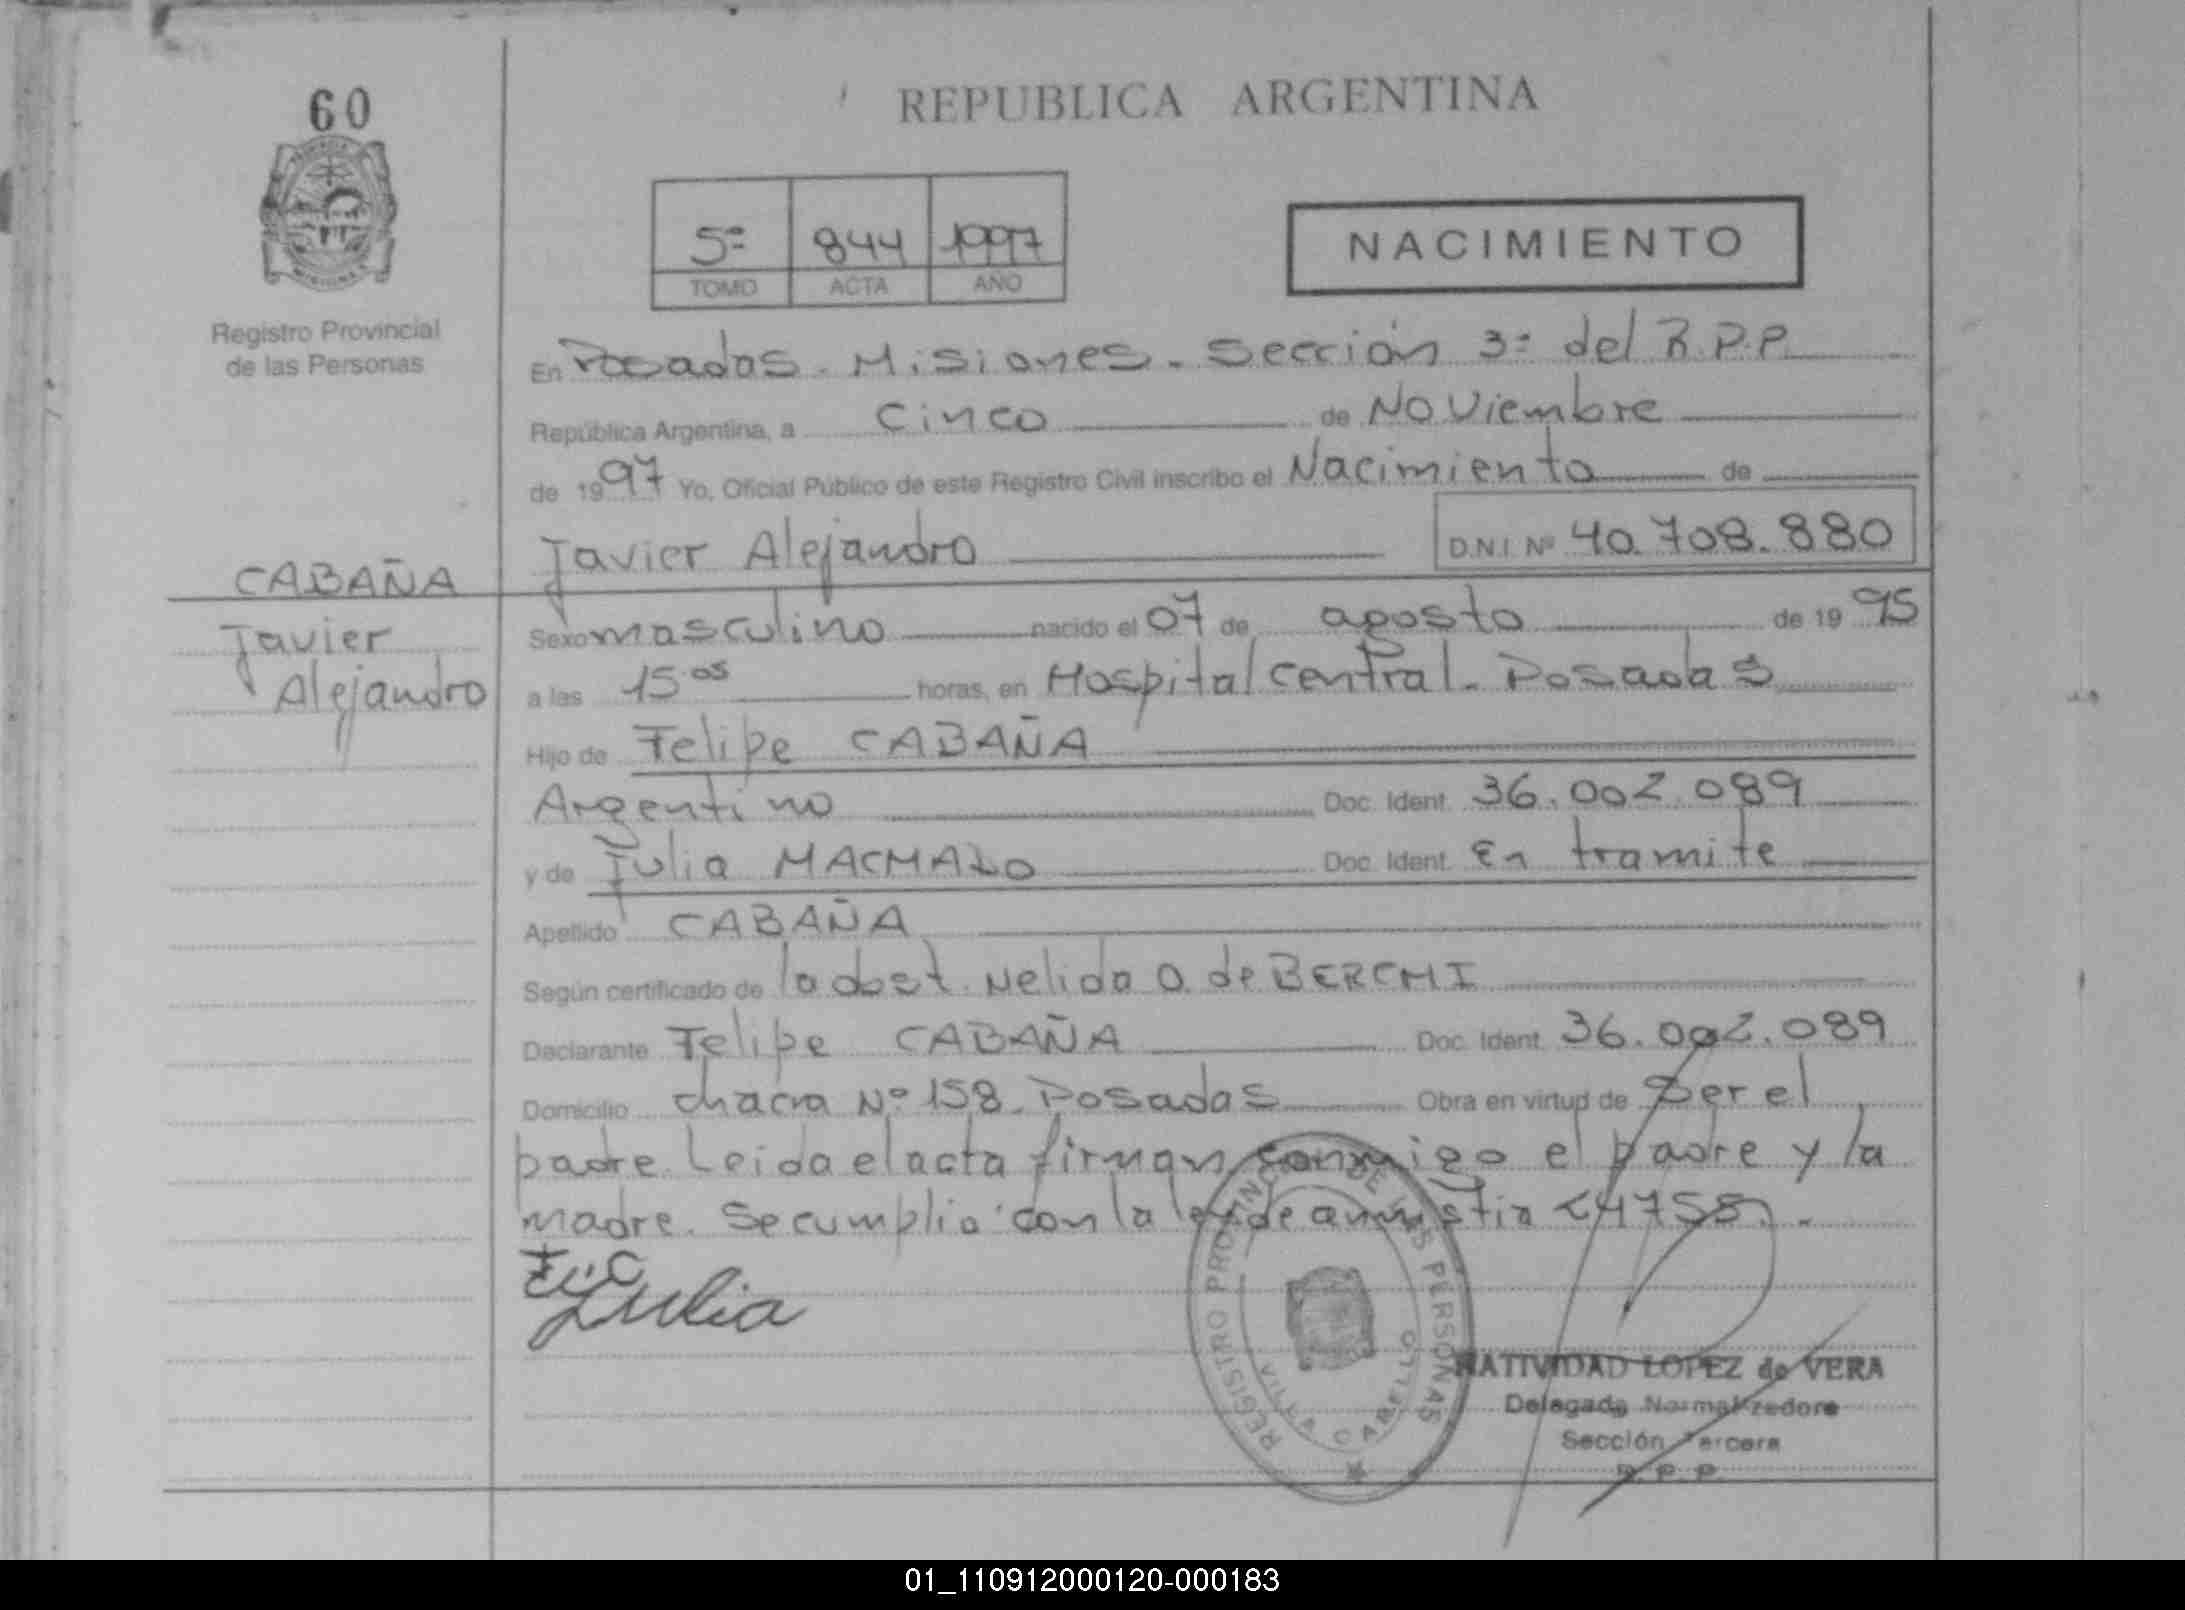 60
REPUBLICA ARGENTINA
5º 844 1997
TOMO ACTA AÑO
NACIMIENTO
Registro Provincial
de las Personas
En Posadas - Misiones - Sección 3º del R.P.P.
República Argentina, a cinco de Noviembre
de 1997 Yo, Oficial Público de este Registro Civil inscribo el Nacimiento de
Javier Alejandro D.N.I. Nº 40.708.880
CABAÑA
Javier
Alejandro
Sexo masculino nacido el 07 de agosto de 1995
a las 15.05 horas, en Hospital Central - Posadas
Hijo de Felipe CABAÑA
Argentino Doc. Ident. 36.002.089
y de Julia MACHADO Doc. Ident. En tramite
Apellido CABAÑA
Según certificado de la obst. Nelida O. de BERCHI
Declarante Felipe CABAÑA Doc. Ident. 36.002.089
Domicilio chacra Nº 158 - Posadas Obra en virtud de Ser el
padre. Leida el acta firman conmigo el padre y la
madre. Se cumplio con la ley de amnistia 24758.-
Julia
REGISTRO PROVINCIAL DE LAS PERSONAS
VILLA CABELLO
NATIVIDAD LOPEZ de VERA
Delegada Normalizadora
Sección Tercera
R. P. P.
01_110912000120-000183